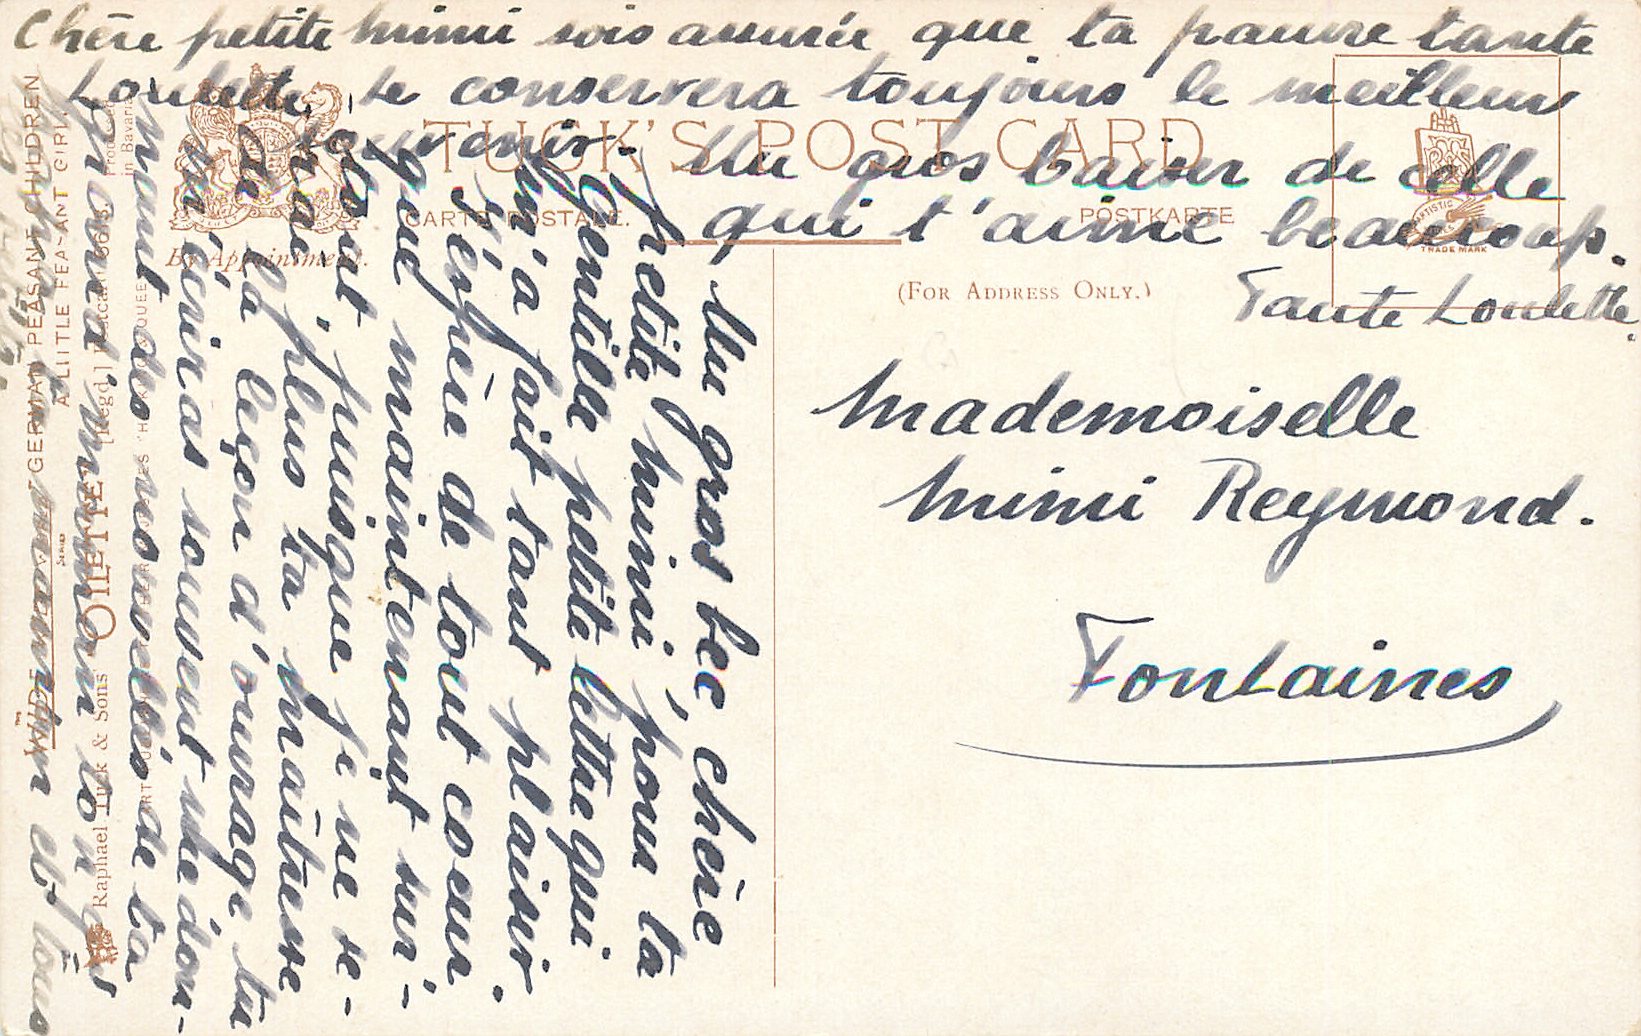 Un gros bec, chère
petite mimi, pour ta
gentille petite lettre qui
m'a fait tant plaisir.
J'espère de tout coeur
que maintenant sur-
tout, puisque je ne se-
rai plus ta maîtresse
à la leçon d'ouvrage tu
m'écriras souvent me don-
nant des nouvelles de ta
grand'maman
maman et tous
Chère petite mimi sois assurée que ta pauvre tante
Loulette te conservera toujours le meilleur
souvenir. Un gros baiser de celle
qui t'aime beaucoup.
Tante Loulette.
Mademoiselle
mimi Reymond.
Fontaines
TUCK'S POST CARD
CARTE POSTALE.
POSTKARTE
By Appointment.
(FOR ADDRESS ONLY.)
ARTISTIC
TRADE MARK
Raphael Tuck & Sons' "OILETTE" [Regd.] Postcard
SERIES
GERMAN PEASANT CHILDREN
A LITTLE PEASANT GIRL
in Bavaria